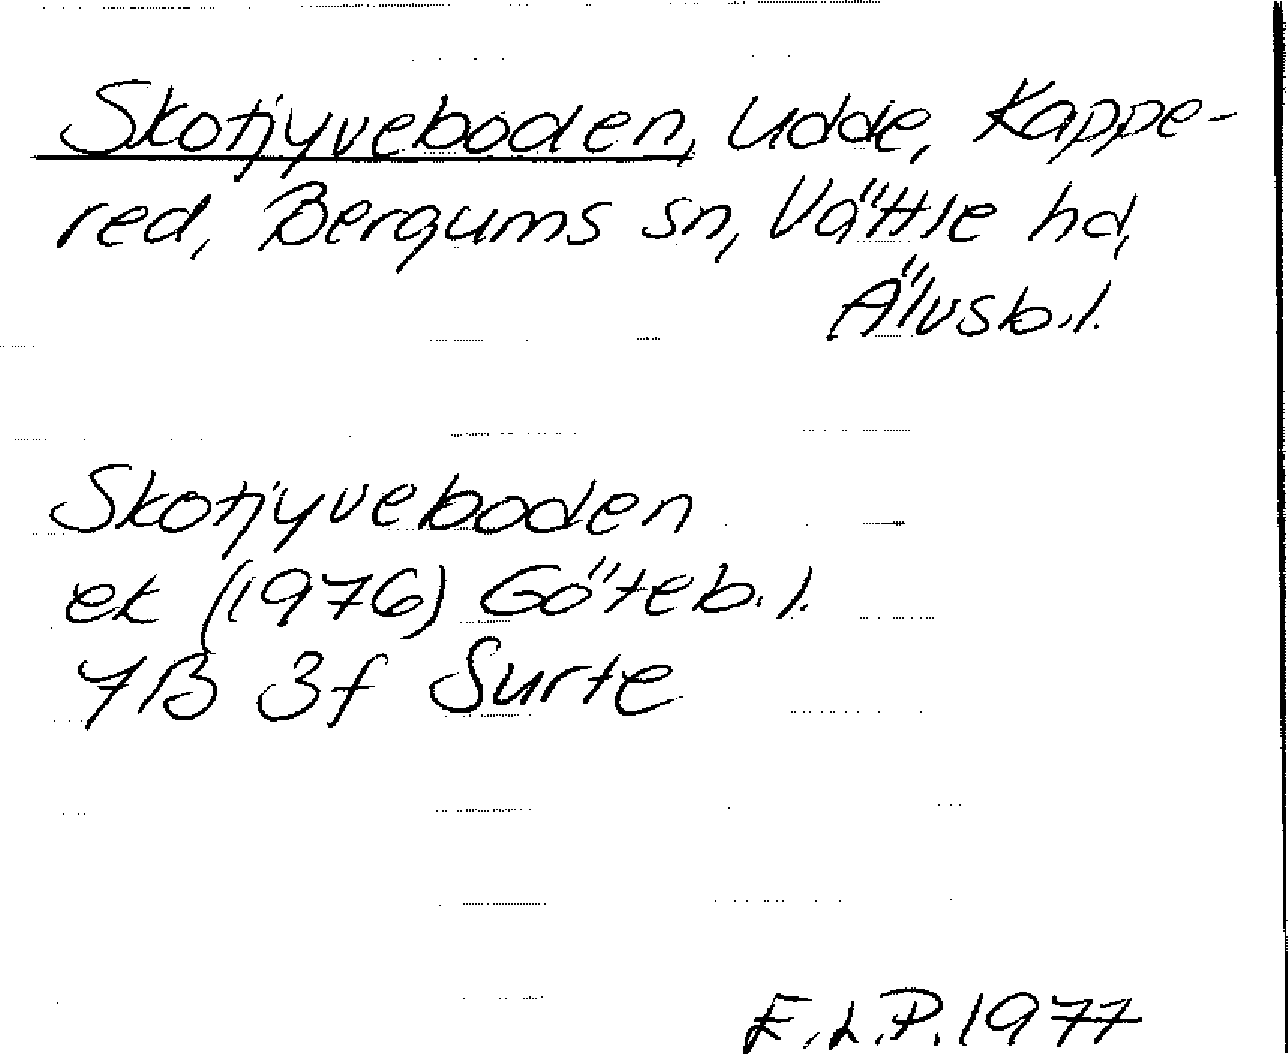 Skotjyveboden, udde, Kappe-
red, Bergums sn, Vättle hd,
Älvsb.l.
Skotjyveboden
ek (1976) Göteb.l.
7B 3f Surte
E.L.P. 1977